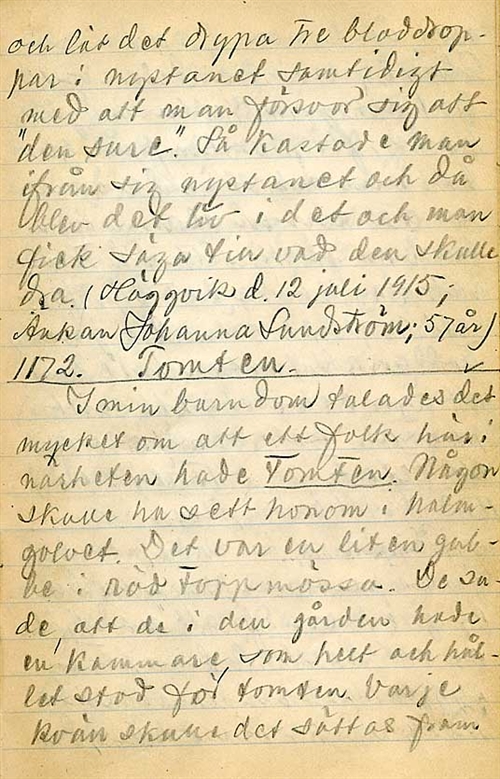 och lät det drypa tre bloddrop-
par i nystanet samtidigt
med att man försvor sig åt
"den sure". Så kastade man
ifrån sig nystanet och då
blev det liv i det och man
fick säga till vad den skulle
dra. (Häggvik d. 12 juli 1915;
Änkan Johanna Sundström; 57 år)
1172. Tomten.
I min barndom talades det
mycket om att ett folk här i
närheten hade Tomten. Någon
skulle ha sett honom i halm-
golvet. Det var en liten gub-
be i röd toppmössa. De sa-
de, att de i den gården hade
en kammare, som helt och hål-
let stod för tomten. Varje
kväll skulle det sättas fram